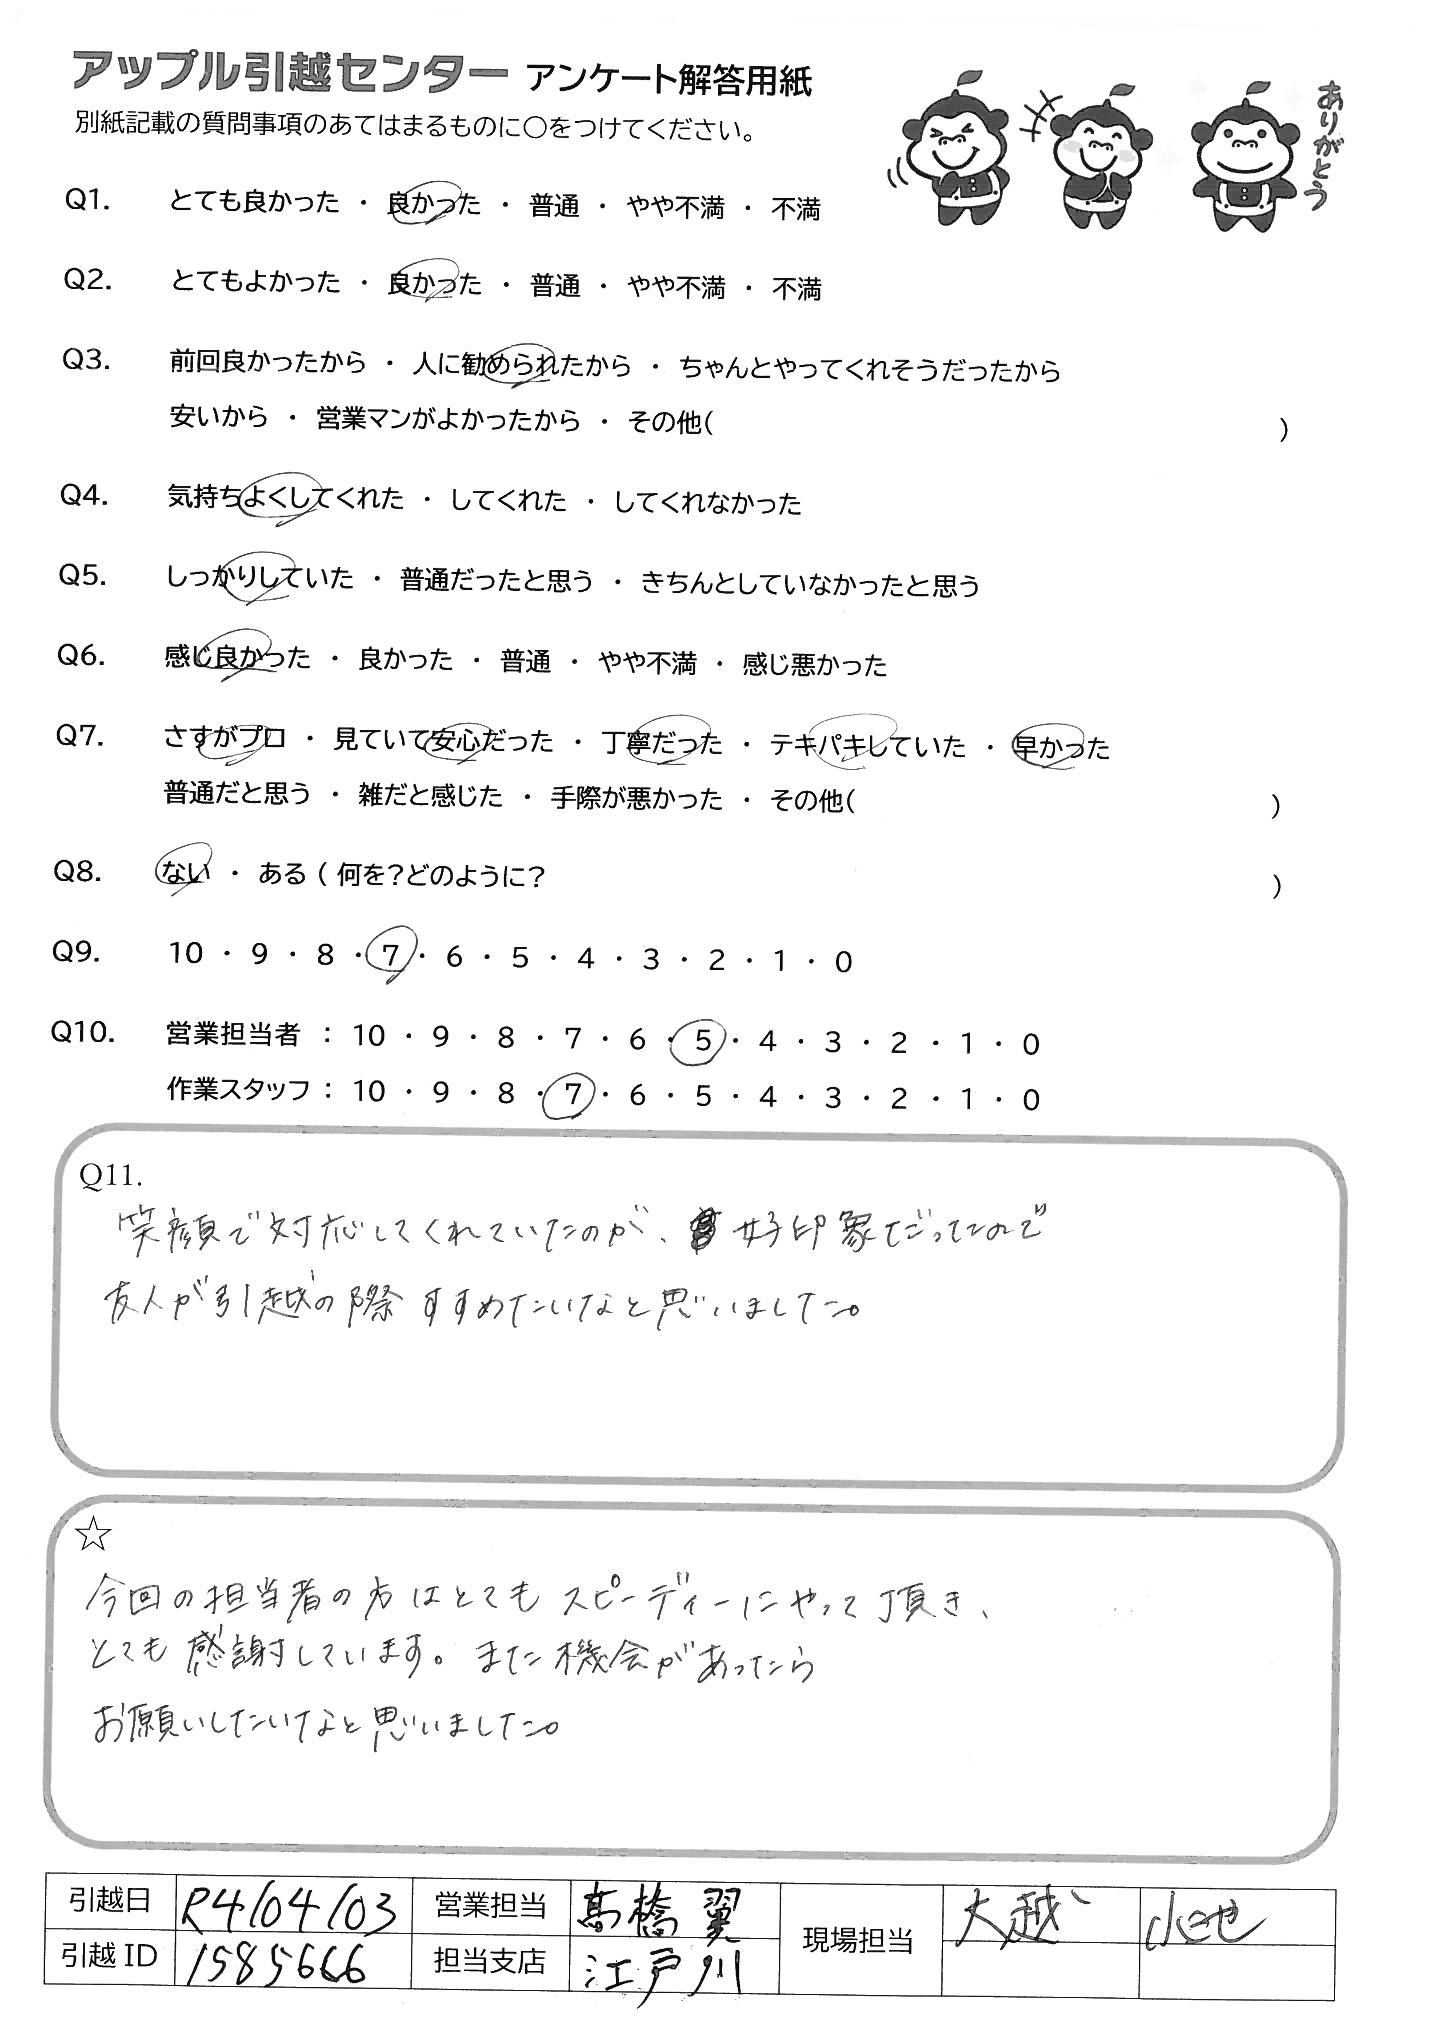 アップル引越センター アンケート解答用紙
ありがとう
別紙記載の質問事項のあてはまるものに○をつけてください。
Q1. とても良かった ・ 良かった ・ 普通 ・ やや不満 ・ 不満
Q2. とてもよかった ・ 良かった ・ 普通 ・ やや不満 ・ 不満
Q3. 前回良かったから ・ 人に勧められたから ・ ちゃんとやってくれそうだったから
安いから ・ 営業マンがよかったから ・ その他( )
Q4. 気持ちよくしてくれた ・ してくれた ・ してくれなかった
Q5. しっかりしていた ・ 普通だったと思う ・ きちんとしていなかったと思う
Q6. 感じ良かった ・ 良かった ・ 普通 ・ やや不満 ・ 感じ悪かった
Q7. さすがプロ ・ 見ていて安心だった ・ 丁寧だった ・ テキパキしていた ・ 早かった
普通だと思う ・ 雑だと感じた ・ 手際が悪かった ・ その他( )
Q8. ない ・ ある ( 何を?どのように? )
Q9. 10 ・ 9 ・ 8 ・ 7 ・ 6 ・ 5 ・ 4 ・ 3 ・ 2 ・ 1 ・ 0
Q10. 営業担当者 : 10 ・ 9 ・ 8 ・ 7 ・ 6 ・ 5 ・ 4 ・ 3 ・ 2 ・ 1 ・ 0
作業スタッフ : 10 ・ 9 ・ 8 ・ 7 ・ 6 ・ 5 ・ 4 ・ 3 ・ 2 ・ 1 ・ 0
Q11.
笑顔で対応してくれていたのが、好印象だったので
友人が引越の際すすめたいなと思いました。
☆
今回の担当者の方はとてもスピーディーにやって頂き、
とても感謝しています。また機会があったら
お願いしたいなと思いました。
引越日 R4/04/03 営業担当 髙橋 翼 現場担当 大越 小池
引越ID 1585666 担当支店 江戸川